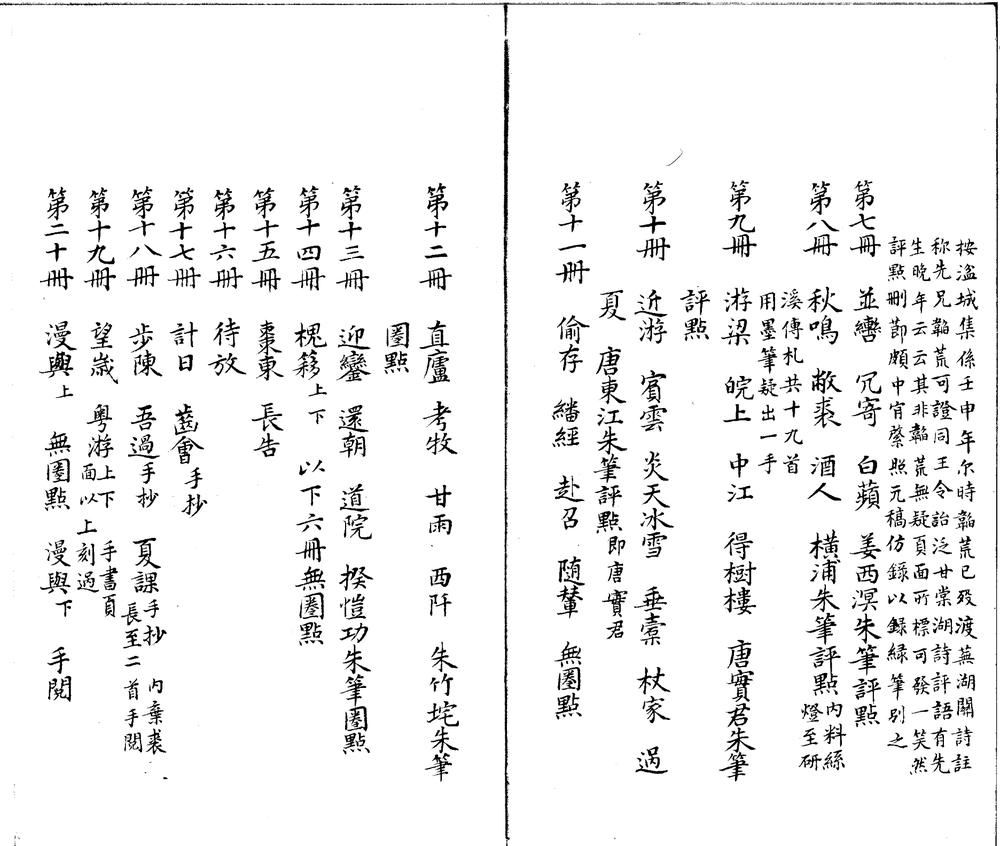 按湓城集係壬申年尓時韜荒已歿渡蕪湖關詩註
称先兄韜荒可證同王令詒泛甘棠湖詩評語有先
生晚年云云其非韜荒無疑頁面所標可發一笑然
評點刪節頗中肯綮照元稿仿錄以錄綠筆別之
第七冊 並轡 冗寄 白蘋 姜西溟朱筆評點
第八冊 秋鳴 敝裘 酒人 橫浦朱筆評點內料絲
燈至研
溪傳札共十九首
用墨筆疑出一手
第九冊 游梁 皖上 中江 得樹樓 唐實君朱筆
評點
第十冊 近游 賓雲 炎天冰雪 垂橐 杖家 過
夏 唐東江朱筆評點即唐實君
第十一冊 偷存 繙經 赴召 随輦 無圈點
第十二冊 直廬 考牧 甘雨 西阡 朱竹垞朱筆
圈點
第十三冊 迎鑾 還朝 道院 揆愷功朱筆圈點
第十四冊 槐簃上下 以下六冊無圈點
第十五冊 棗東 長告
第十六冊 待放
第十七冊 計日 齒會手抄
第十八冊 步陳 吾過手抄 夏課手抄 內棄裘
長至二首手閱
第十九冊 望歲 粤游上下 手書頁
面以上刻過
第二十冊 漫與上 無圈點 漫與下 手閱